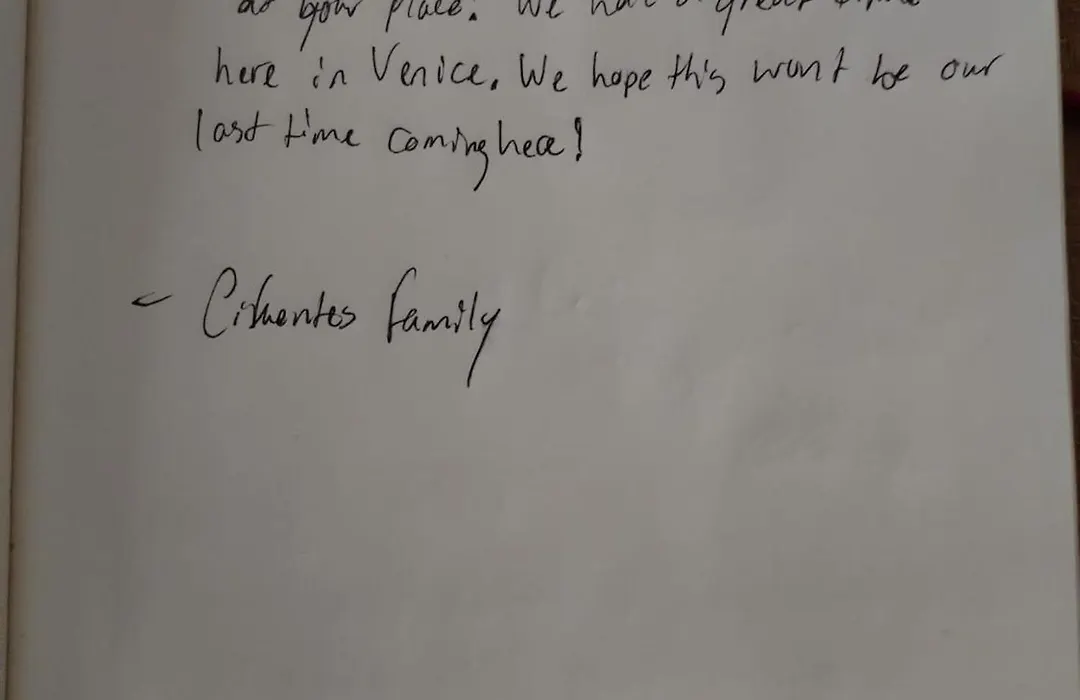 at your place. We had a great time
here in Venice. We hope this wont be our
last time coming here!
- Cifuentes family